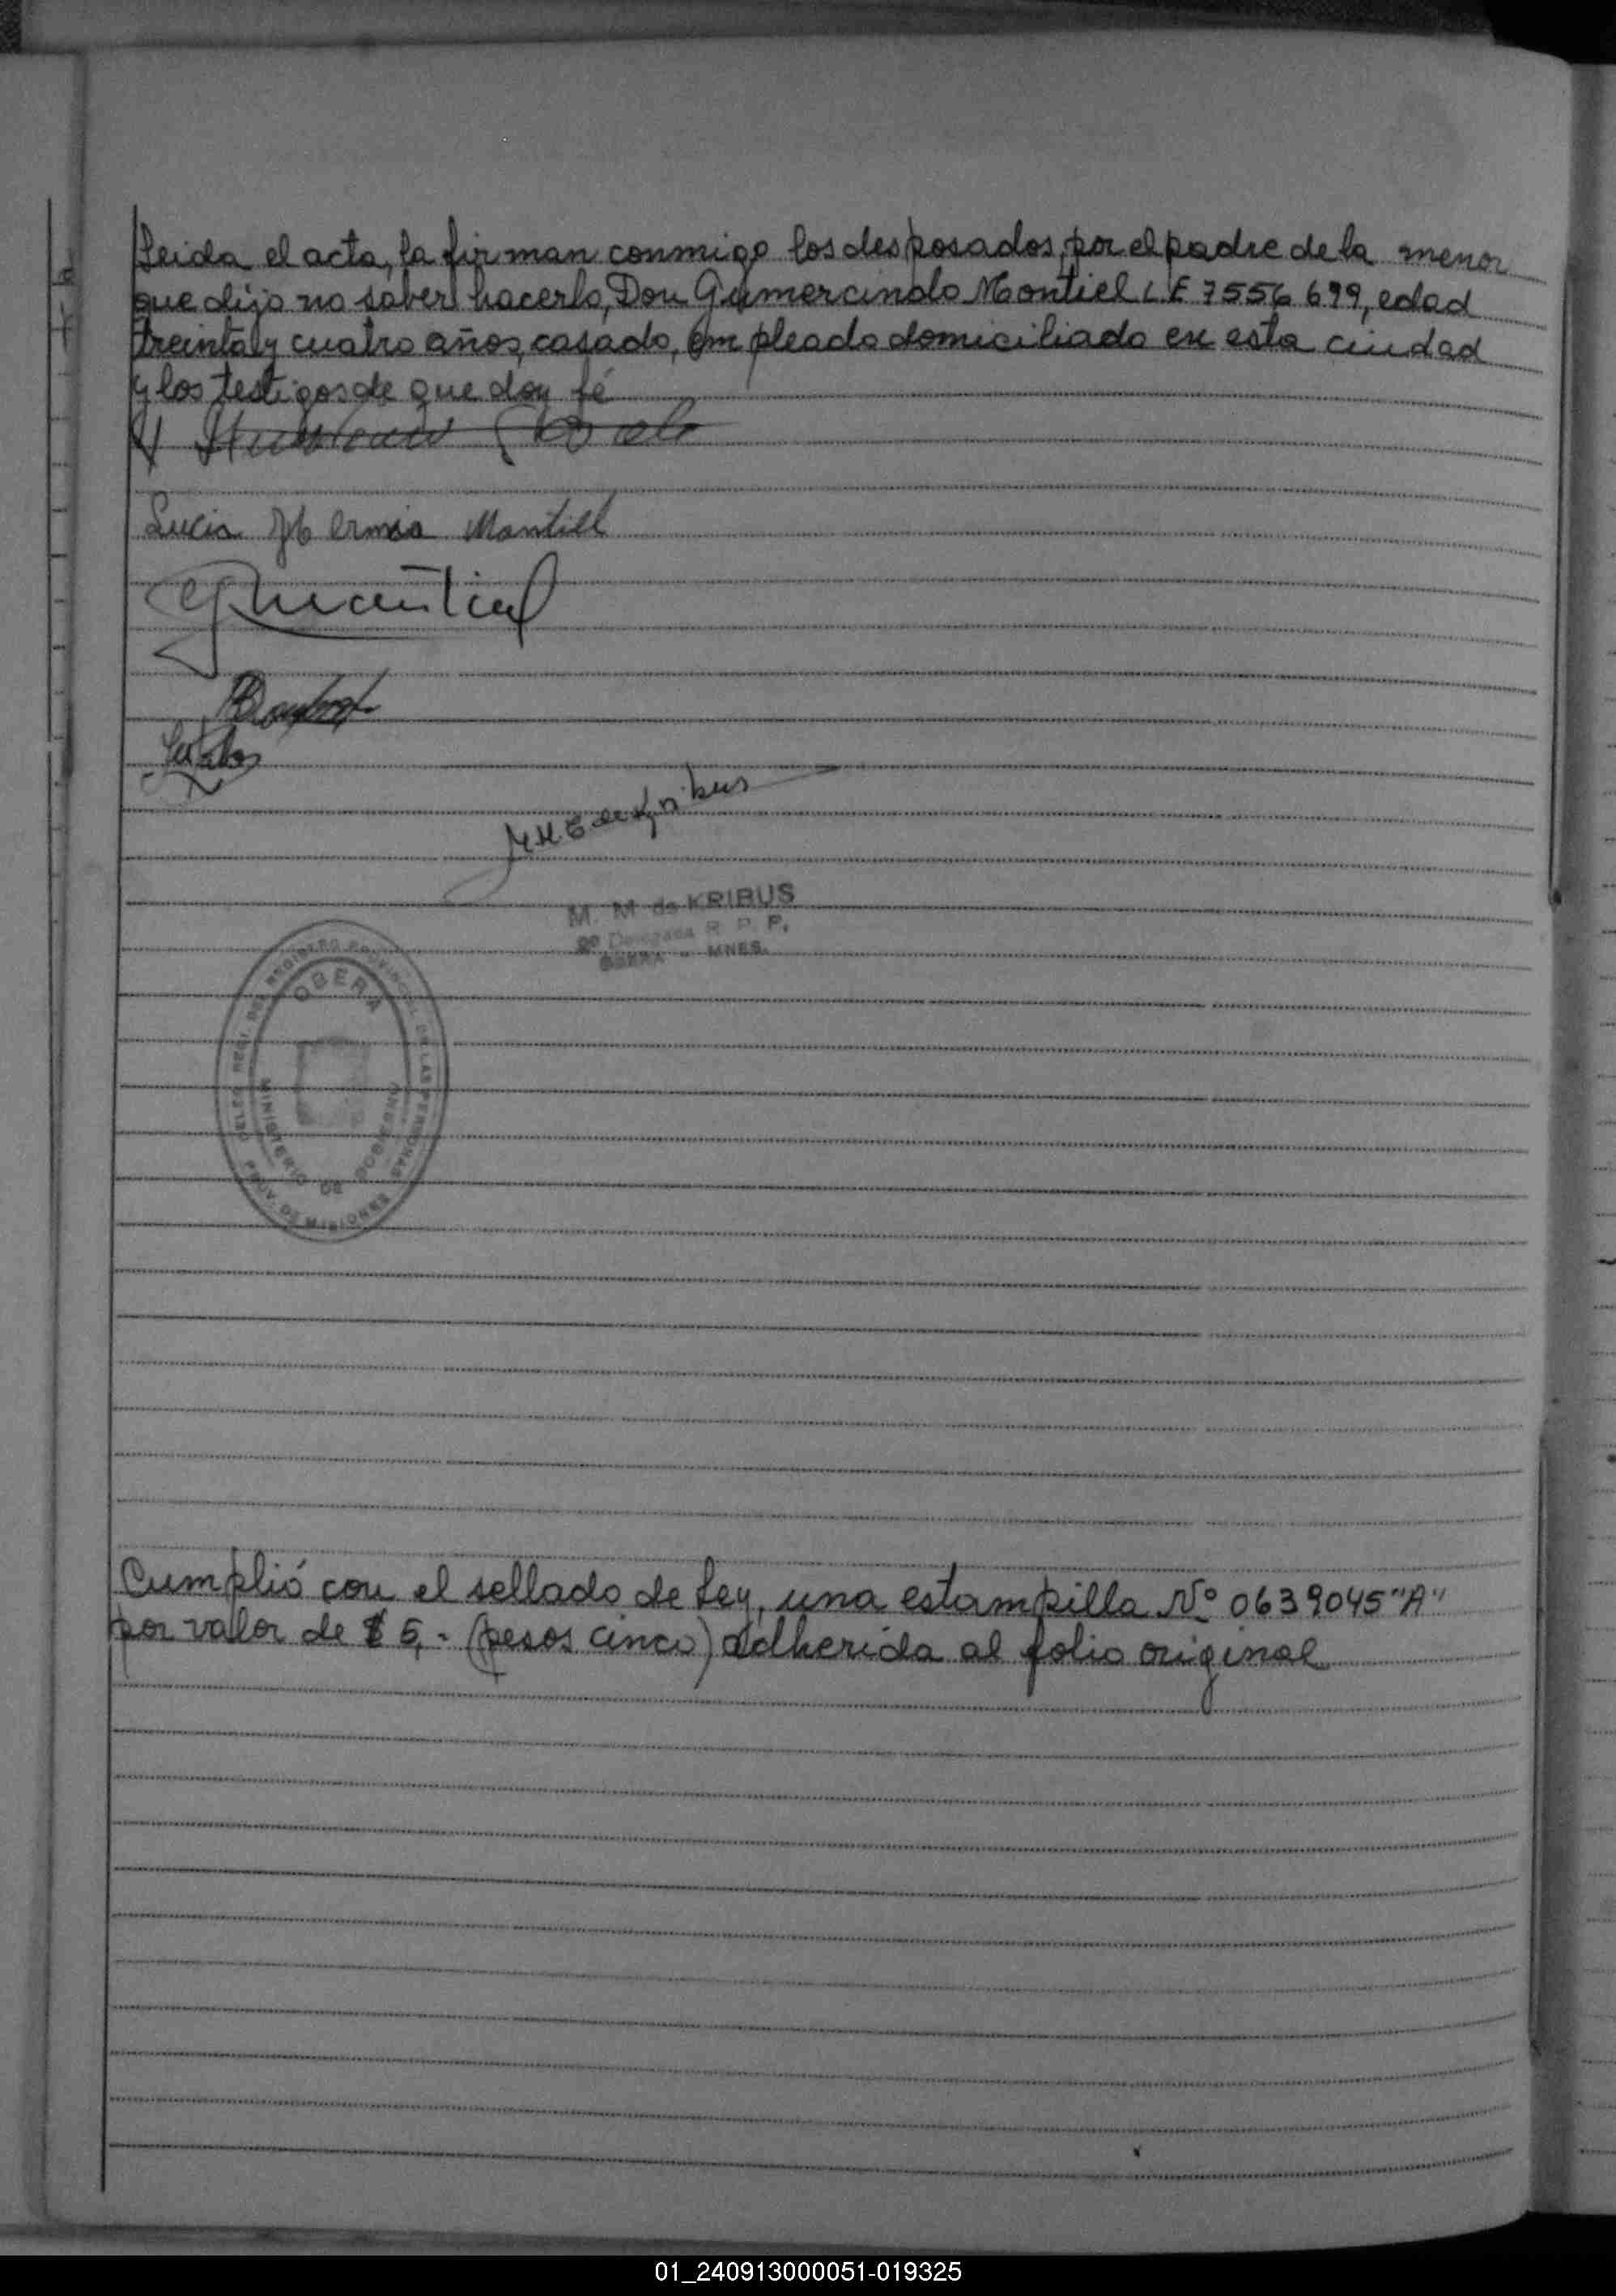 Leida el acta, la firman conmigo los desposados, por el padre de la menor
que dijo no saber hacerlo, Don Gumercindo Montiel L.E 7556699, edad
treinta y cuatro años, casado, empleado domiciliado en esta ciudad
y los testigos de que doy fé
Lucia Hermia Montiel
GMontiel
M. M. de Kribus
M. M de KRIBUS
Delegada R. P. P.
OBERA - MNES.
REGISTRO PROVINCIAL DE LAS PERSONAS
OBERA
MINISTERIO DE GOBIERNO
PROV. DE MISIONES
Cumplió con el sellado de Ley, una estampilla Nº 0639045 "A"
por valor de $ 5,- (pesos cinco) adherida al folio original
01_240913000051-019325